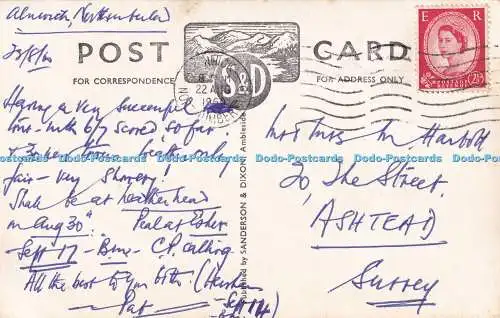 Alnwick, Northumberland
22/8/60
POST CARD
FOR CORRESPONDENCE
FOR ADDRESS ONLY
S&D
22 AUG
E R
2½D
Having a very successful
time - with 6/7 scored so far
only
fair - very showery!
Shall be at Leatherhead
on Aug 30th. Peal at Esher
Sept 17 - C.P. calling
All the best to you both. (Hersham
Pat Sept 14)
Published by SANDERSON & DIXON, Ambleside
Mr & Mrs M. Harbold
30 The Street,
ASHTEAD
Surrey
Dodo-Postcards Dodo-Postcards Dodo-Postcards Dodo-Postcards